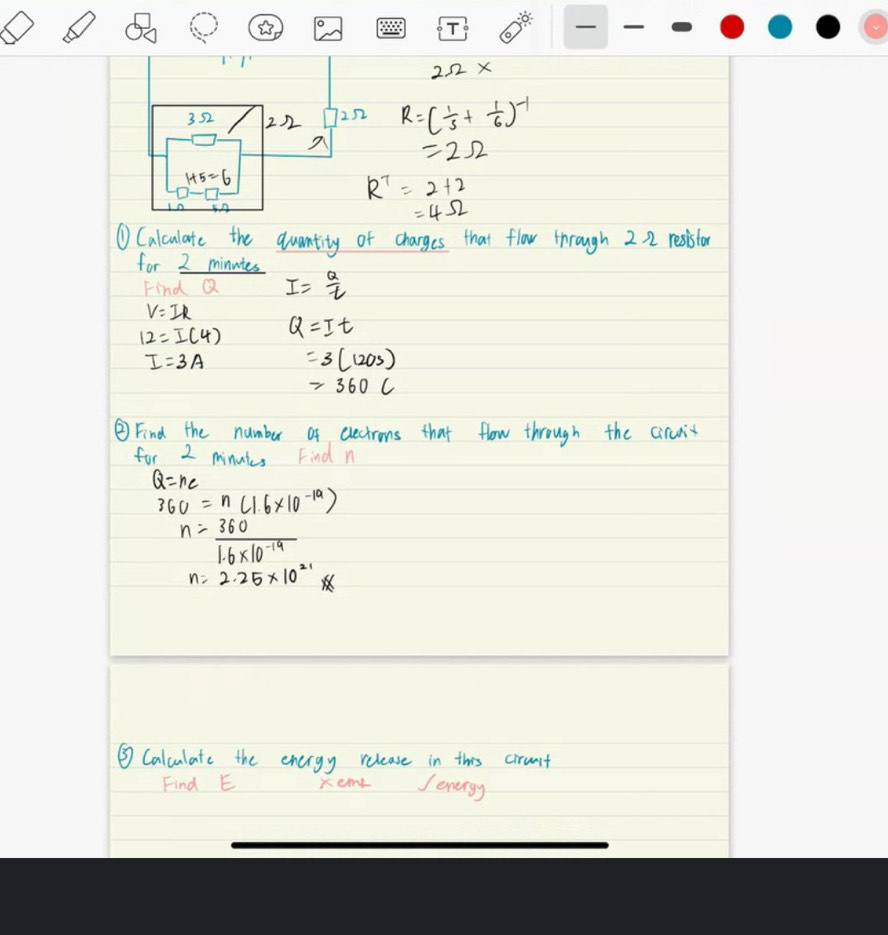 2Ω ×
3Ω
2Ω
2Ω
R=(1/3+ 1/6)⁻¹
=2Ω
1+5=6
1Ω 5Ω
Rᵀ = 2+2
=4Ω
① Calculate the quantity of charges that flow through 2Ω resistor
for 2 minutes
Find Q
V=IR
12=I(4)
I=3A
I= Q/t
Q=It
=3(120s)
= 360 C
② Find the number of electrons that flow through the circuit
for 2 minutes Find n
Q=ne
360 = n (1.6×10⁻¹⁹)
n= 360
1.6×10⁻¹⁹
n= 2.25×10²¹
③ Calculate the energy release in this circuit
Find E × emf √energy